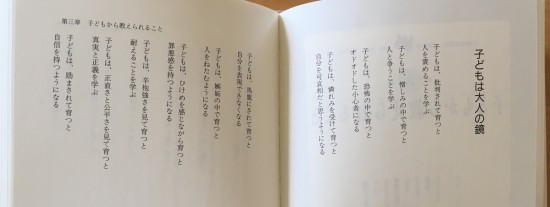 子どもは大人の鏡
子どもは、批判されて育つと
人を責めることを学ぶ
子どもは、憎しみの中で育つと
人と争うことを学ぶ
子どもは、恐怖の中で育つと
オドオドした小心者になる
子どもは、憐れみを受けて育つと
自分を可哀想だと思うようになる
子どもは、馬鹿にされて育つと
自分を表現できなくなる
子どもは、嫉妬の中で育つと
人をねたむようになる
子どもは、ひけめを感じながら育つと
罪悪感を持つようになる
子どもは、辛抱強さを見て育つと
耐えることを学ぶ
子どもは、正直さと公平さを見て育つと
真実と正義を学ぶ
子どもは、励まされて育つと
自信を持つようになる
第三章 子どもから教えられること